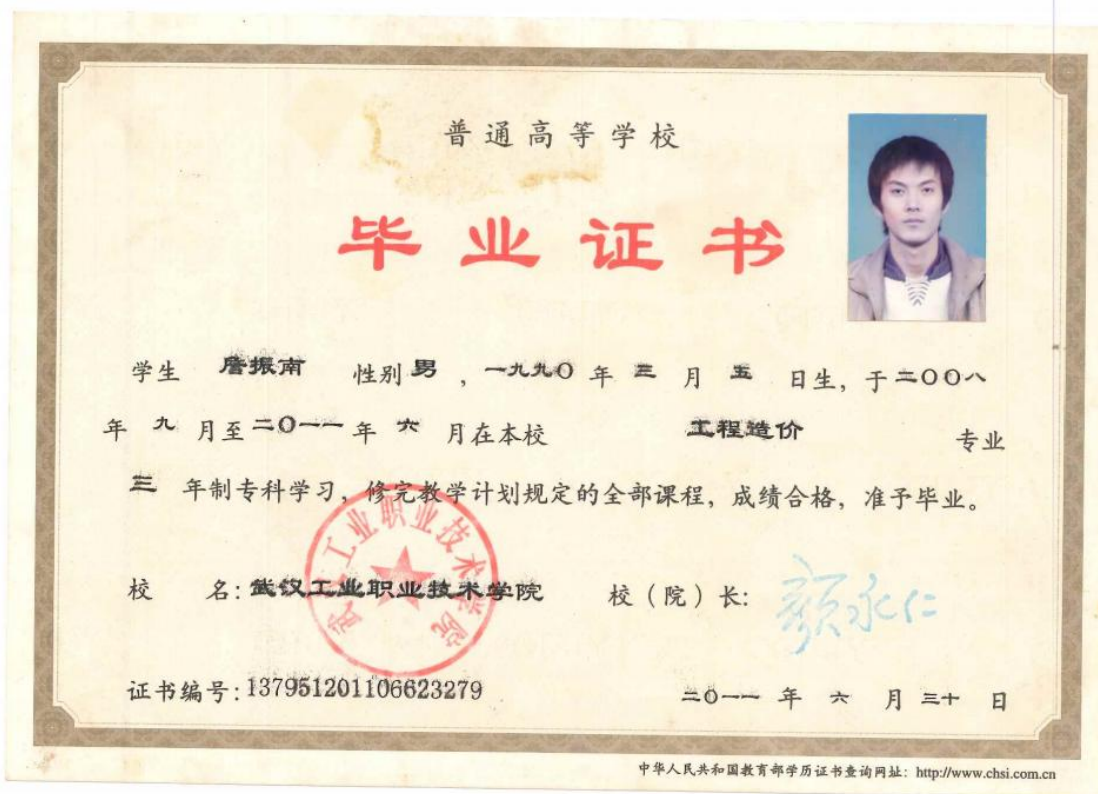 普通高等学校
毕业证书
学生 詹振南 性别 男 ，一九九〇 年 三 月 五 日生，于 二〇〇八
年 九 月至 二〇一一 年 六 月在本校 工程造价 专业
三 年制专科学习，修完教学计划规定的全部课程，成绩合格，准予毕业。
武汉工业职业技术学院
校 名：武汉工业职业技术学院 校（院）长：颜永仁
证书编号：137951201106623279 二〇一一 年 六 月 三十 日
中华人民共和国教育部学历证书查询网址：http://www.chsi.com.cn